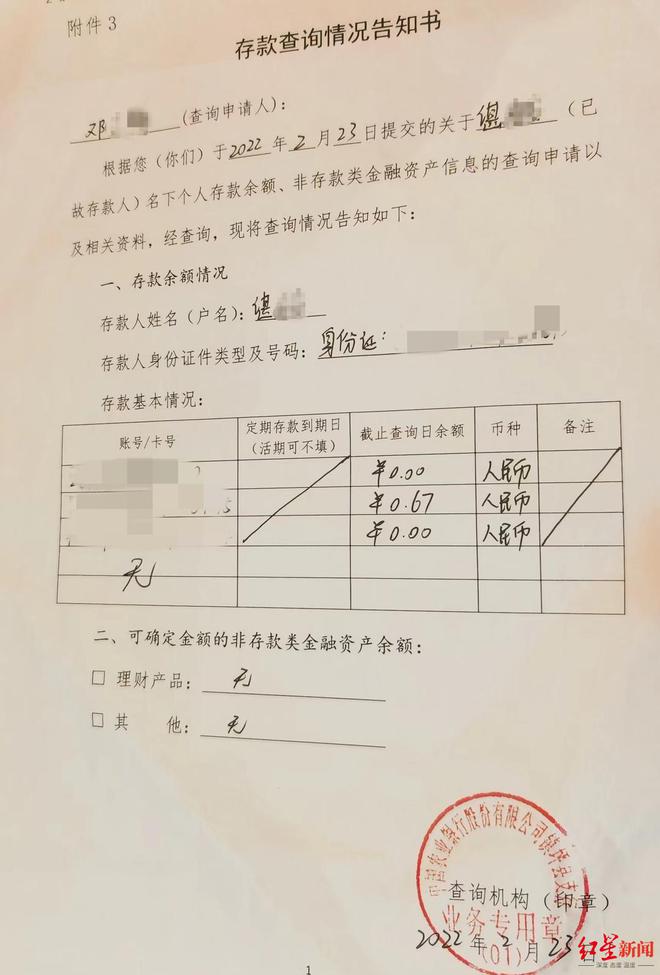 附件3
存款查询情况告知书
邓 (查询申请人)：
根据您（你们）于2022年2月23日提交的关于谌 （已
故存款人）名下个人存款余额、非存款类金融资产信息的查询申请以
及相关资料，经查询，现将查询情况告知如下：
一、存款余额情况
存款人姓名（户名）：谌
存款人身份证件类型及号码：身份证：
存款基本情况：
账号/卡号 定期存款到期日（活期可不填） 截止查询日余额 币种 备注
¥0.00 人民币
¥0.67 人民币
¥0.00 人民币
无
二、可确定金额的非存款类金融资产余额：
□ 理财产品：无
□ 其 他：无
中国农业银行股份有限公司镇坪县支行
查询机构（印章）
业务专用章
(01)
2022年2月23日
红星新闻
深度 态度 温度
1